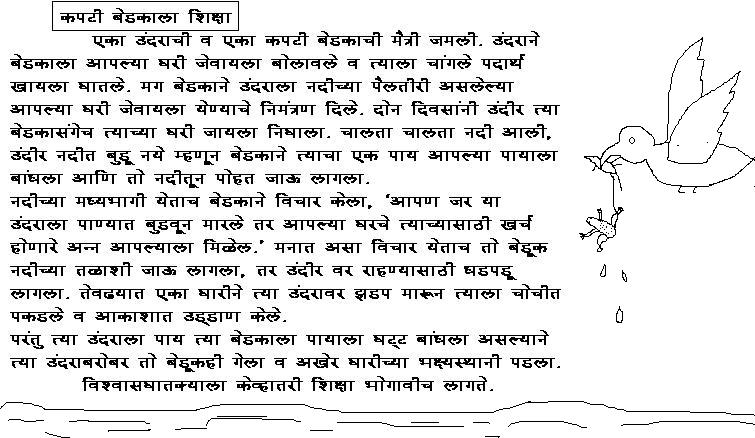 कपटी बेडकाला शिक्षा
एका उंदराची व एका कपटी बेडकाची मैत्री जमली. उंदराने
बेडकाला आपल्या घरी जेवायला बोलावले व त्याला चांगले पदार्थ
खायला घातले. मग बेडकाने उंदराला नदीच्या पैलतीरी असलेल्या
आपल्या घरी जेवायला येण्याचे निमंत्रण दिले. दोन दिवसांनी उंदीर त्या
बेडकासंगेच त्याच्या घरी जायला निघाला. चालता चालता नदी आली,
उंदीर नदीत बुडू नये म्हणून बेडकाने त्याचा एक पाय आपल्या पायाला
बांधला आणि तो नदीतून पोहत जाऊ लागला.
नदीच्या मध्यभागी येताच बेडकाने विचार केला, 'आपण जर या
उंदराला पाण्यात बुडवून मारले तर आपल्या घरचे त्याच्यासाठी खर्च
होणारे अन्न आपल्याला मिळेल.' मनात असा विचार येताच तो बेडूक
नदीच्या तळाशी जाऊ लागला, तर उंदीर वर राहण्यासाठी धडपडू
लागला. तेवढयात एका घारीने त्या उंदरावर झडप मारून त्याला चोचीत
पकडले व आकाशात उड्डाण केले.
परंतु त्या उंदराला पाय त्या बेडकाला पायाला घट्ट बांधला असल्याने
त्या उंदराबरोबर तो बेडूकही गेला व अखेर घारीच्या भक्ष्यस्थानी पडला.
विश्वासघातक्याला केव्हातरी शिक्षा भोगावीच लागते.